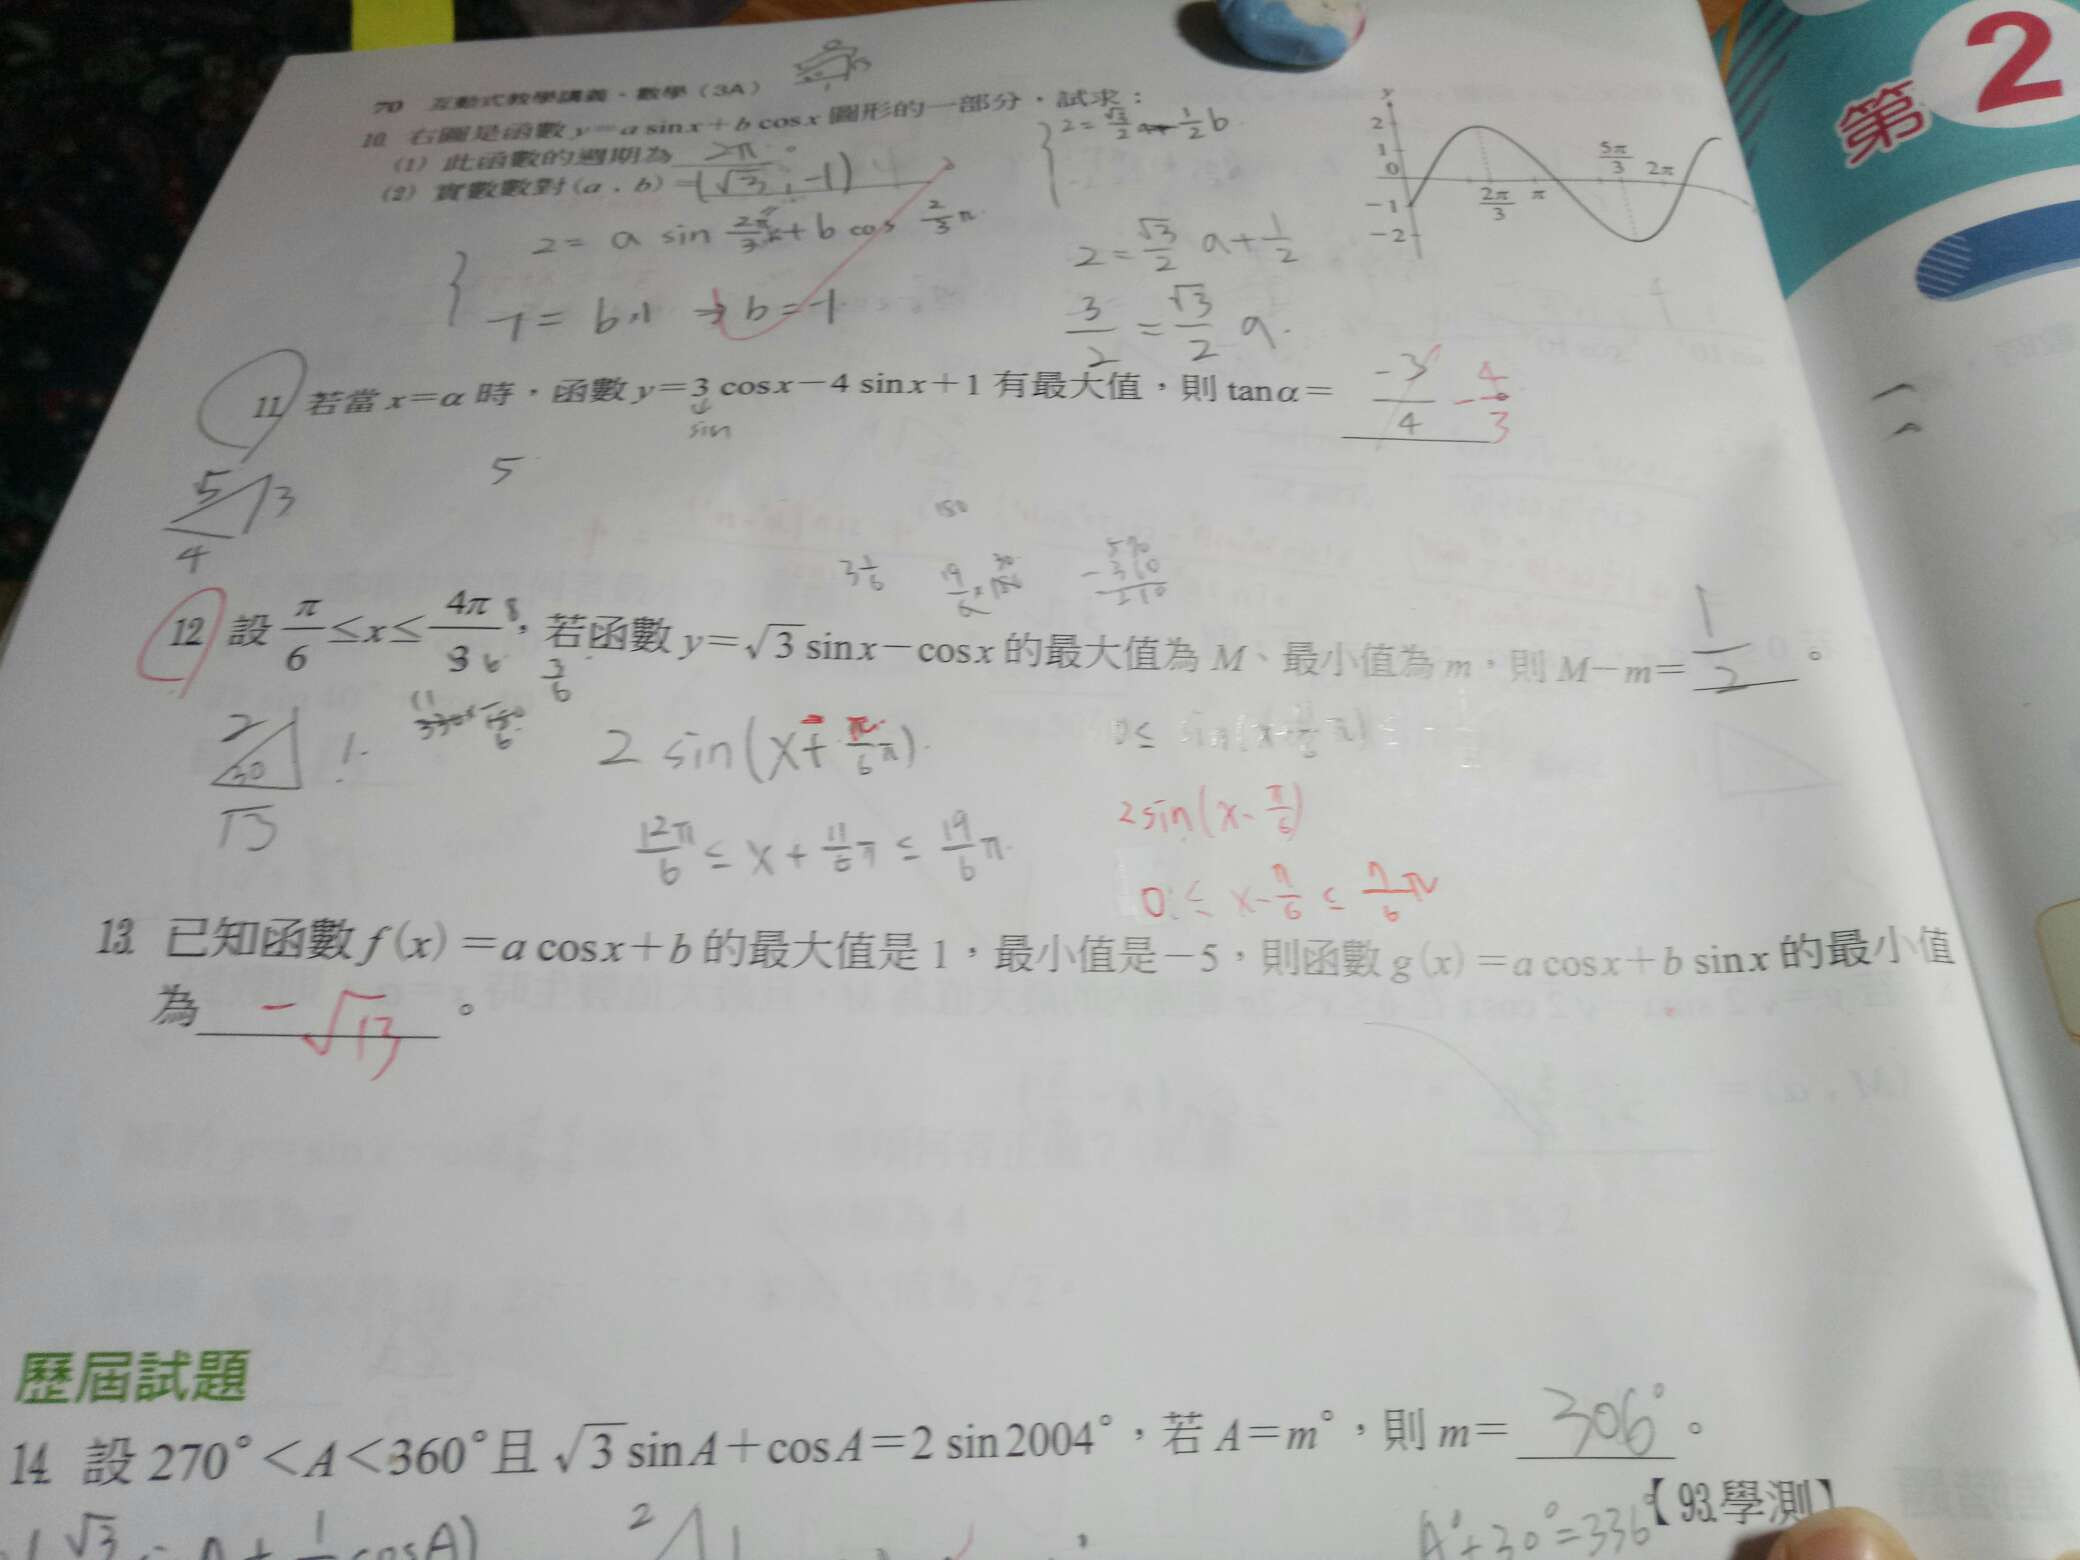 70 互動式教學講義－數學（3A）
10. 右圖是函數 y＝a sinx＋b cosx 圖形的一部分，試求：
(1) 此函數的週期為 2π 。
(2) 實數數對(a , b)＝(√3 , -1)
2 = √3/2 a - 1/2 b
2 = a sin 2π/3 + b cos 2/3 π
-1 = b·1 → b = -1
2 = √3/2 a + 1/2
3/2 = √3/2 a
y
2
1
0
-1
-2
2π/3
π
5π/3
2π
第2
11. 若當 x＝α 時，函數 y＝3 cosx－4 sinx＋1 有最大值，則 tanα＝ -3/4 -4/3
sin
5 3 4
5
150
3 1/6
19/6 × 180 30
590 - 360 210
12. 設 π/6 ≤ x ≤ 4π/3 8/6，若函數 y＝√3 sinx－cosx 的最大值為 M、最小值為 m，則 M－m＝ 1/2 。
2 30 1 √3
2 sin(x + π/6 π)
2sin(x - π/6)
12π/6 ≤ x + 11/6 π ≤ 19/6 π
0 ≤ x - π/6 ≤ 7/6 π
13. 已知函數 f(x)＝a cosx＋b 的最大值是 1，最小值是－5，則函數 g(x)＝a cosx＋b sinx 的最小值
為 -√13 。
歷屆試題
14. 設 270°＜A＜360°且 √3 sinA＋cosA＝2 sin2004°，若 A＝m°，則 m＝ 306° 。
【93.學測】
A°+30°=336°
2